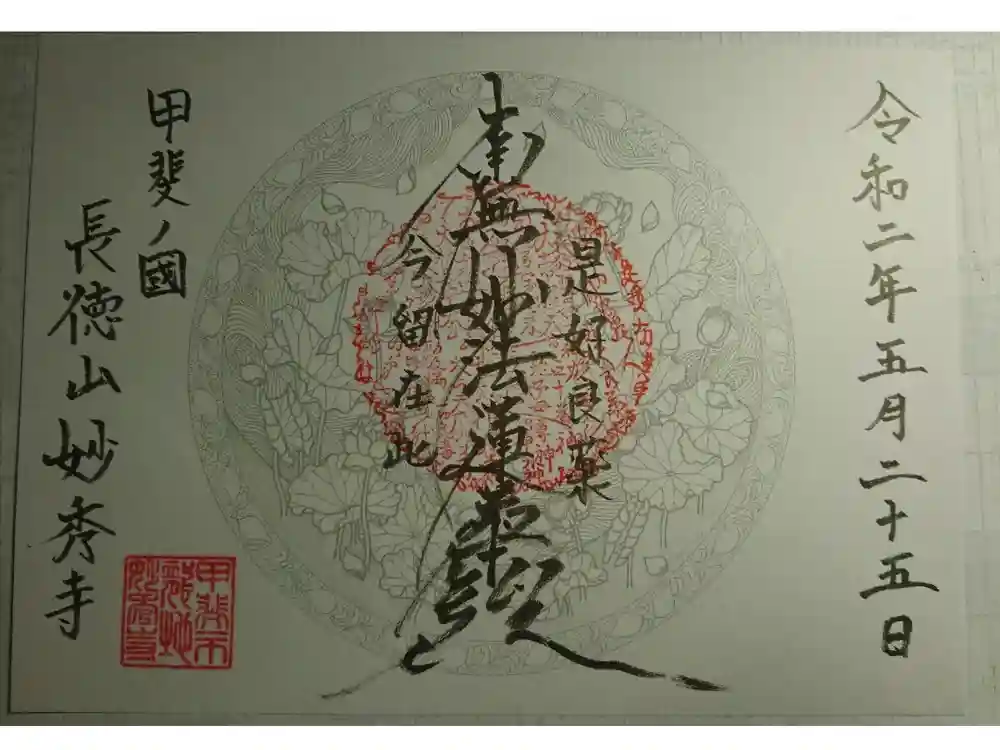 令和二年五月二十五日
是好良薬
南無妙法蓮華経
今留在此
甲斐ノ國
長徳山妙秀寺
甲斐市
龍地
妙秀寺